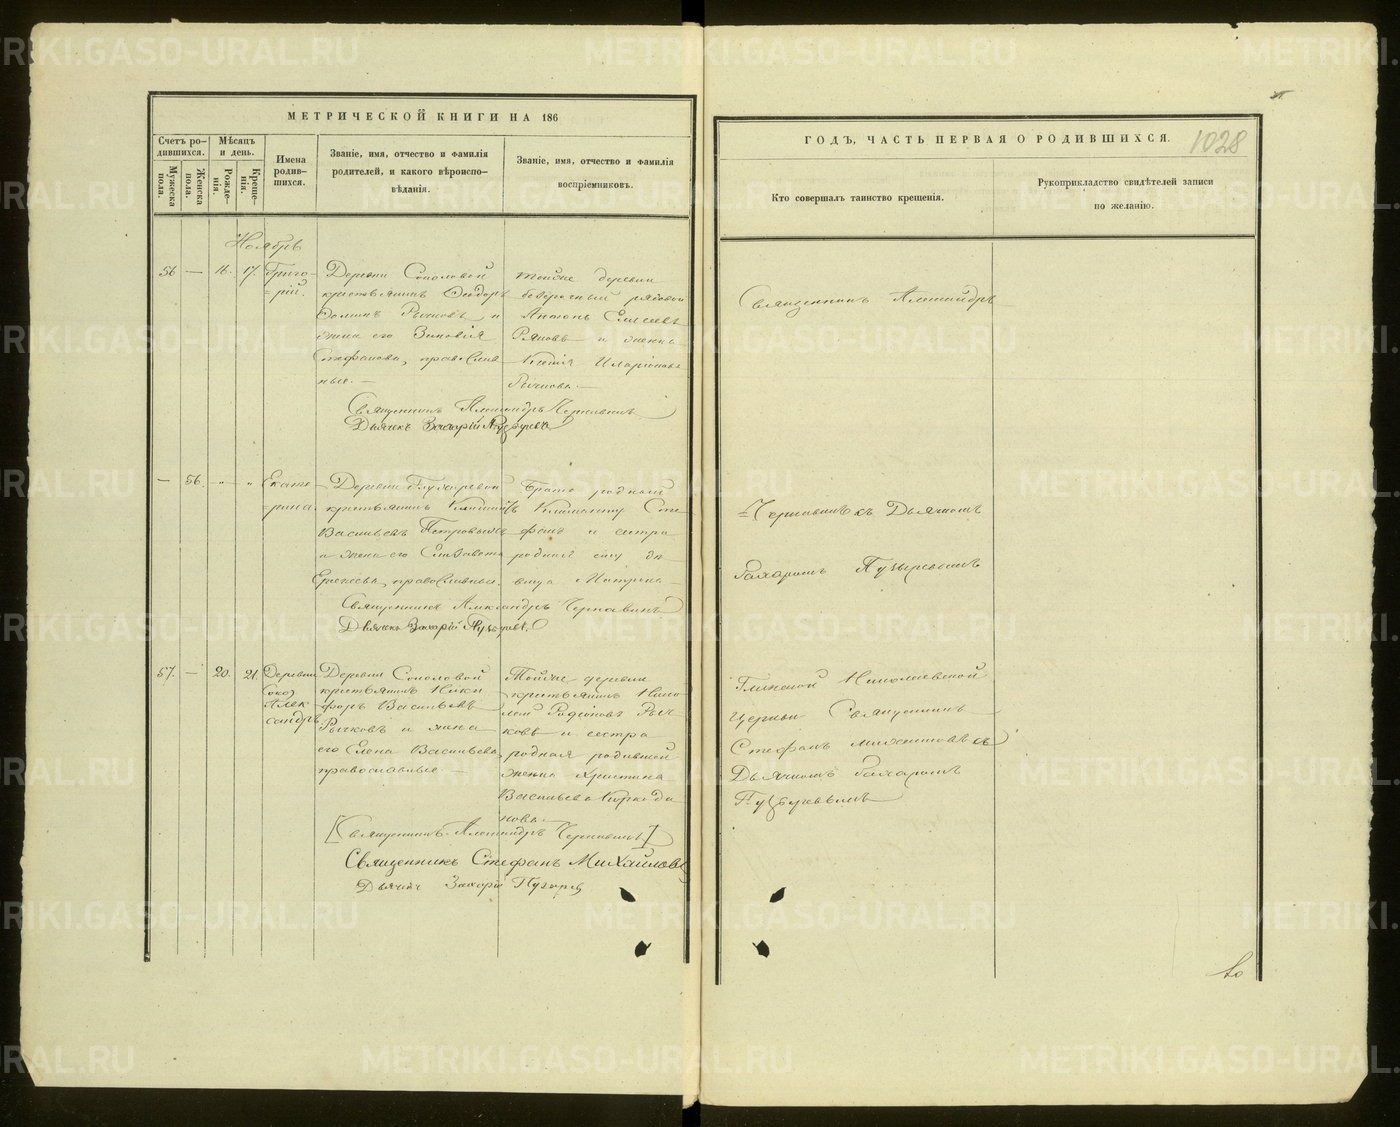 МЕТРИЧЕСКОЙ КНИГИ НА 186
Счетъ ро-
дившихся.
Мѣсяцъ
и день.
Мужеска
пола.
Женска
пола.
Рожде-
нія.
Креще-
нія.
Имена
родив-
шихся.
Званіе, имя, отчество и фамилія
родителей, и какого вѣроиспо-
вѣданія.
Званіе, имя, отчество и фамилія
воспріемниковъ.
Ноябрь
56 — 16. 17. Григо-
рій.
Деревни Соколовой
крестьянинъ Ѳеодоръ
Рычковъ и
жена его Зиновія
Стефанова, православ-
ные. —
тойже деревни
безсрочный рядовой
Антонъ Елисеевъ
и жена
Ксенія Иларіонова
Рычкова. —
Священникъ Александръ Чернавинъ
Дьячекъ Захарій Пузыревъ
— 56. " " Екате-
рина.
Деревни
крестьянинъ Климентъ
Васильевъ Петровыхъ
и жена его Елизавета
православные.
братъ родный
Клименту Сте-
фанъ и сестра
родная ему дѣ-
вица Матрена —
Священникъ Александръ Чернавинъ
Дьячекъ Захарій Пузыревъ.
57. — 20. 21. Деревни
Соко
Алек
сандръ
Деревни Соколовой
крестьянинъ Ники
форъ Васильевъ
Рычковъ и жена
его Елена Васильева,
православные. —
Тойже деревни
крестьянинъ Нико
лай Родіоновъ Рыч-
ковъ и сестра
родная родившей
жены Христина
Васильева
нова.
[Священникъ Александръ Чернавинъ]
Священникъ Стефанъ Михайловъ
Дьячекъ Захарій Пузырев
ГОДЪ, ЧАСТЬ ПЕРВАЯ О РОДИВШИХСЯ.
1028
Кто совершалъ таинство крещенія.
Рукоприкладство свидѣтелей записи
по желанію.
Священникъ Александръ
Чернавинъ съ Дьячкомъ
Захаромъ Пузыревымъ
Глинской Николаевской
церкви Священникъ
Стефанъ Михайловъ съ
Дьячкомъ Захаромъ
Пузыревымъ
METRIKI.GASO-URAL.RU